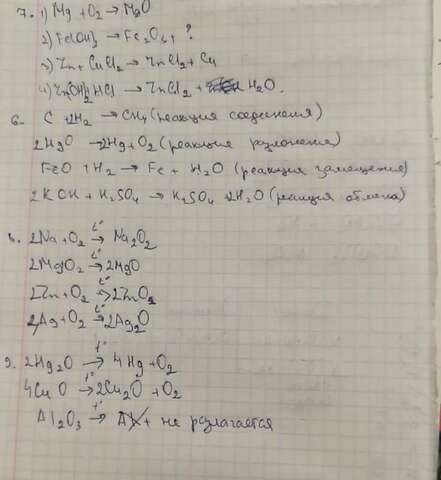 7. 1) Mg + O₂ → MgO
2) Fe(OH)₃ → Fe₂O₃ + ?
3) Zn + CuCl₂ → ZnCl₂ + Cu
4) Zn(OH)₂ HCl → ZnCl₂ + H₂O.
6. C + 2H₂ → CH₄ (реакция соединения)
2HgO → 2Hg + O₂ (реакция разложения)
FeO + H₂ → Fe + H₂O (реакция замещения)
2KOH + H₂SO₄ → K₂SO₄ + 2H₂O (реакция обмена)
8. 2Na + O₂ →t° Na₂O₂
2MgO₂ →t° 2MgO
2Zn + O₂ →t° 2ZnO₂
2Ag + O₂ →t° 2Ag₂O
9. 2Hg₂O →t° 4Hg + O₂
4CuO →t° 2Cu₂O + O₂
Al₂O₃ →t° не разлагается